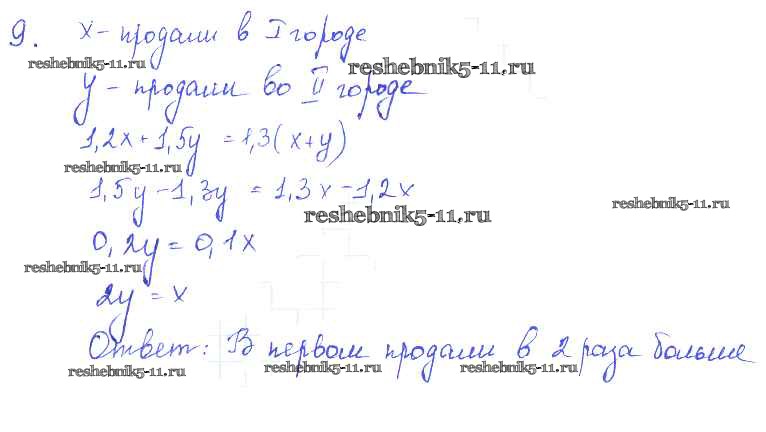 9. x - продали в I городе
reshebnik5-11.ru reshebnik5-11.ru
y - продали во II городе
1,2x + 1,5y = 1,3(x+y)
reshebnik5-11.ru
1,5y - 1,3y = 1,3x - 1,2x
reshebnik5-11.ru reshebnik5-11.ru
0,2y = 0,1x
reshebnik5-11.ru
2y = x
Ответ: В первом продали в 2 раза больше
reshebnik5-11.ru reshebnik5-11.ru reshebnik5-11.ru